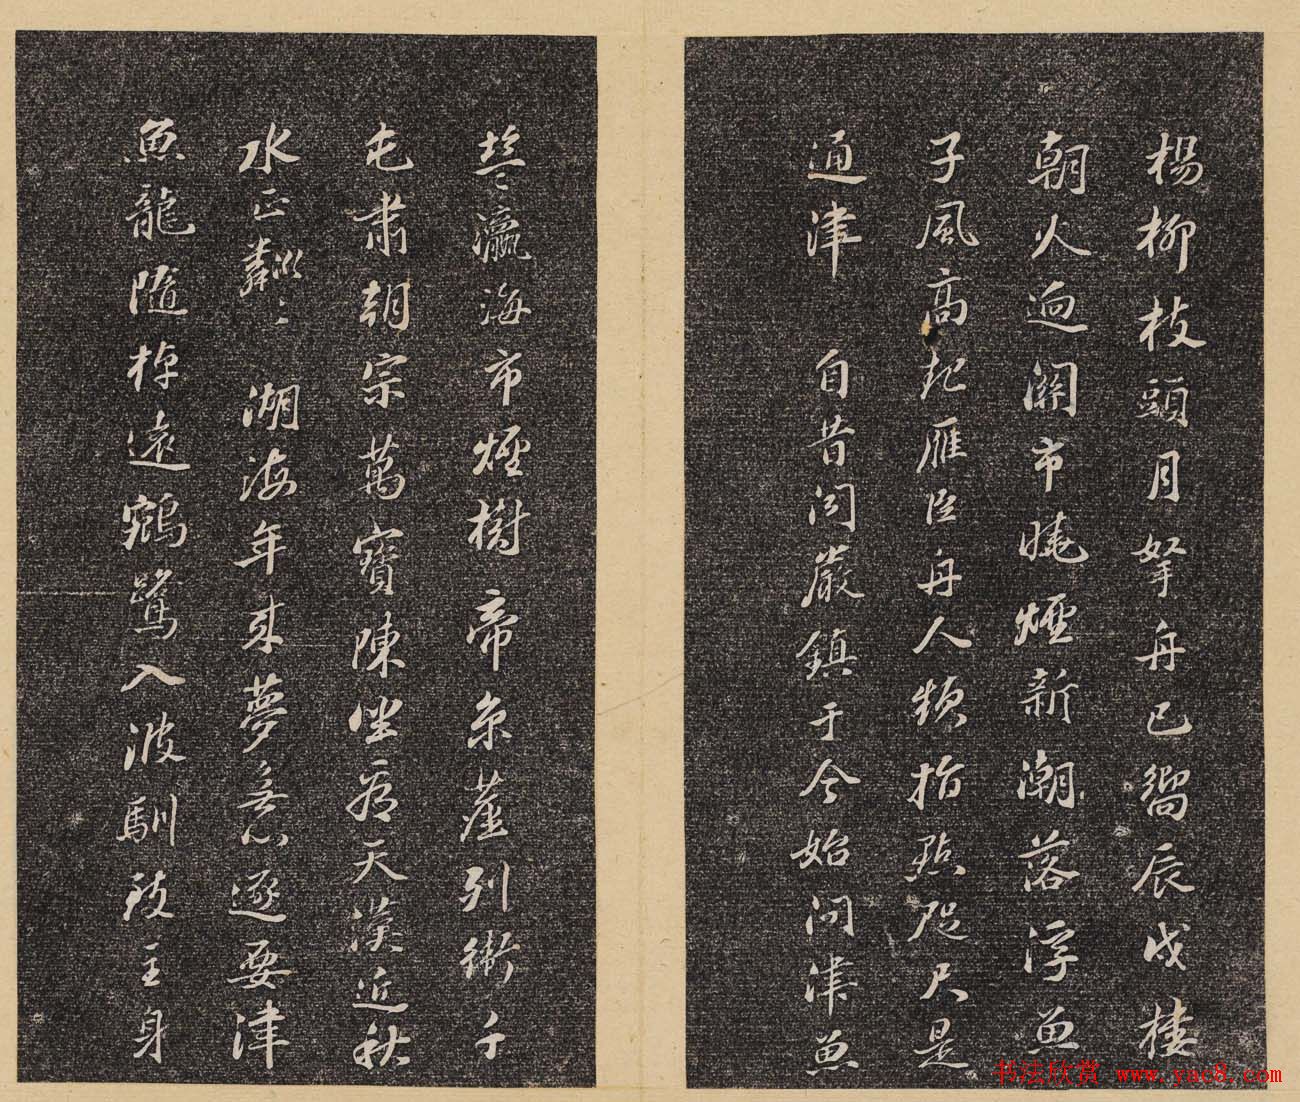 楊柳枝頭月拏舟已嚮辰戍樓
朝火迥關市曉煙新潮落浮魚
子風高起雁臣舟人頻指點咫尺是
通津　自昔聞嚴鎮于今始問津魚
塩瀛海市煙樹帝京塵列衛千
屯肅朝宗萬寶陳坐看天漢近秋
水正粼〻　湖海年來夢無心逐要津
魚龍隨棹遠鵷鷺入波馴致主身
书法欣赏 www.yac8.com